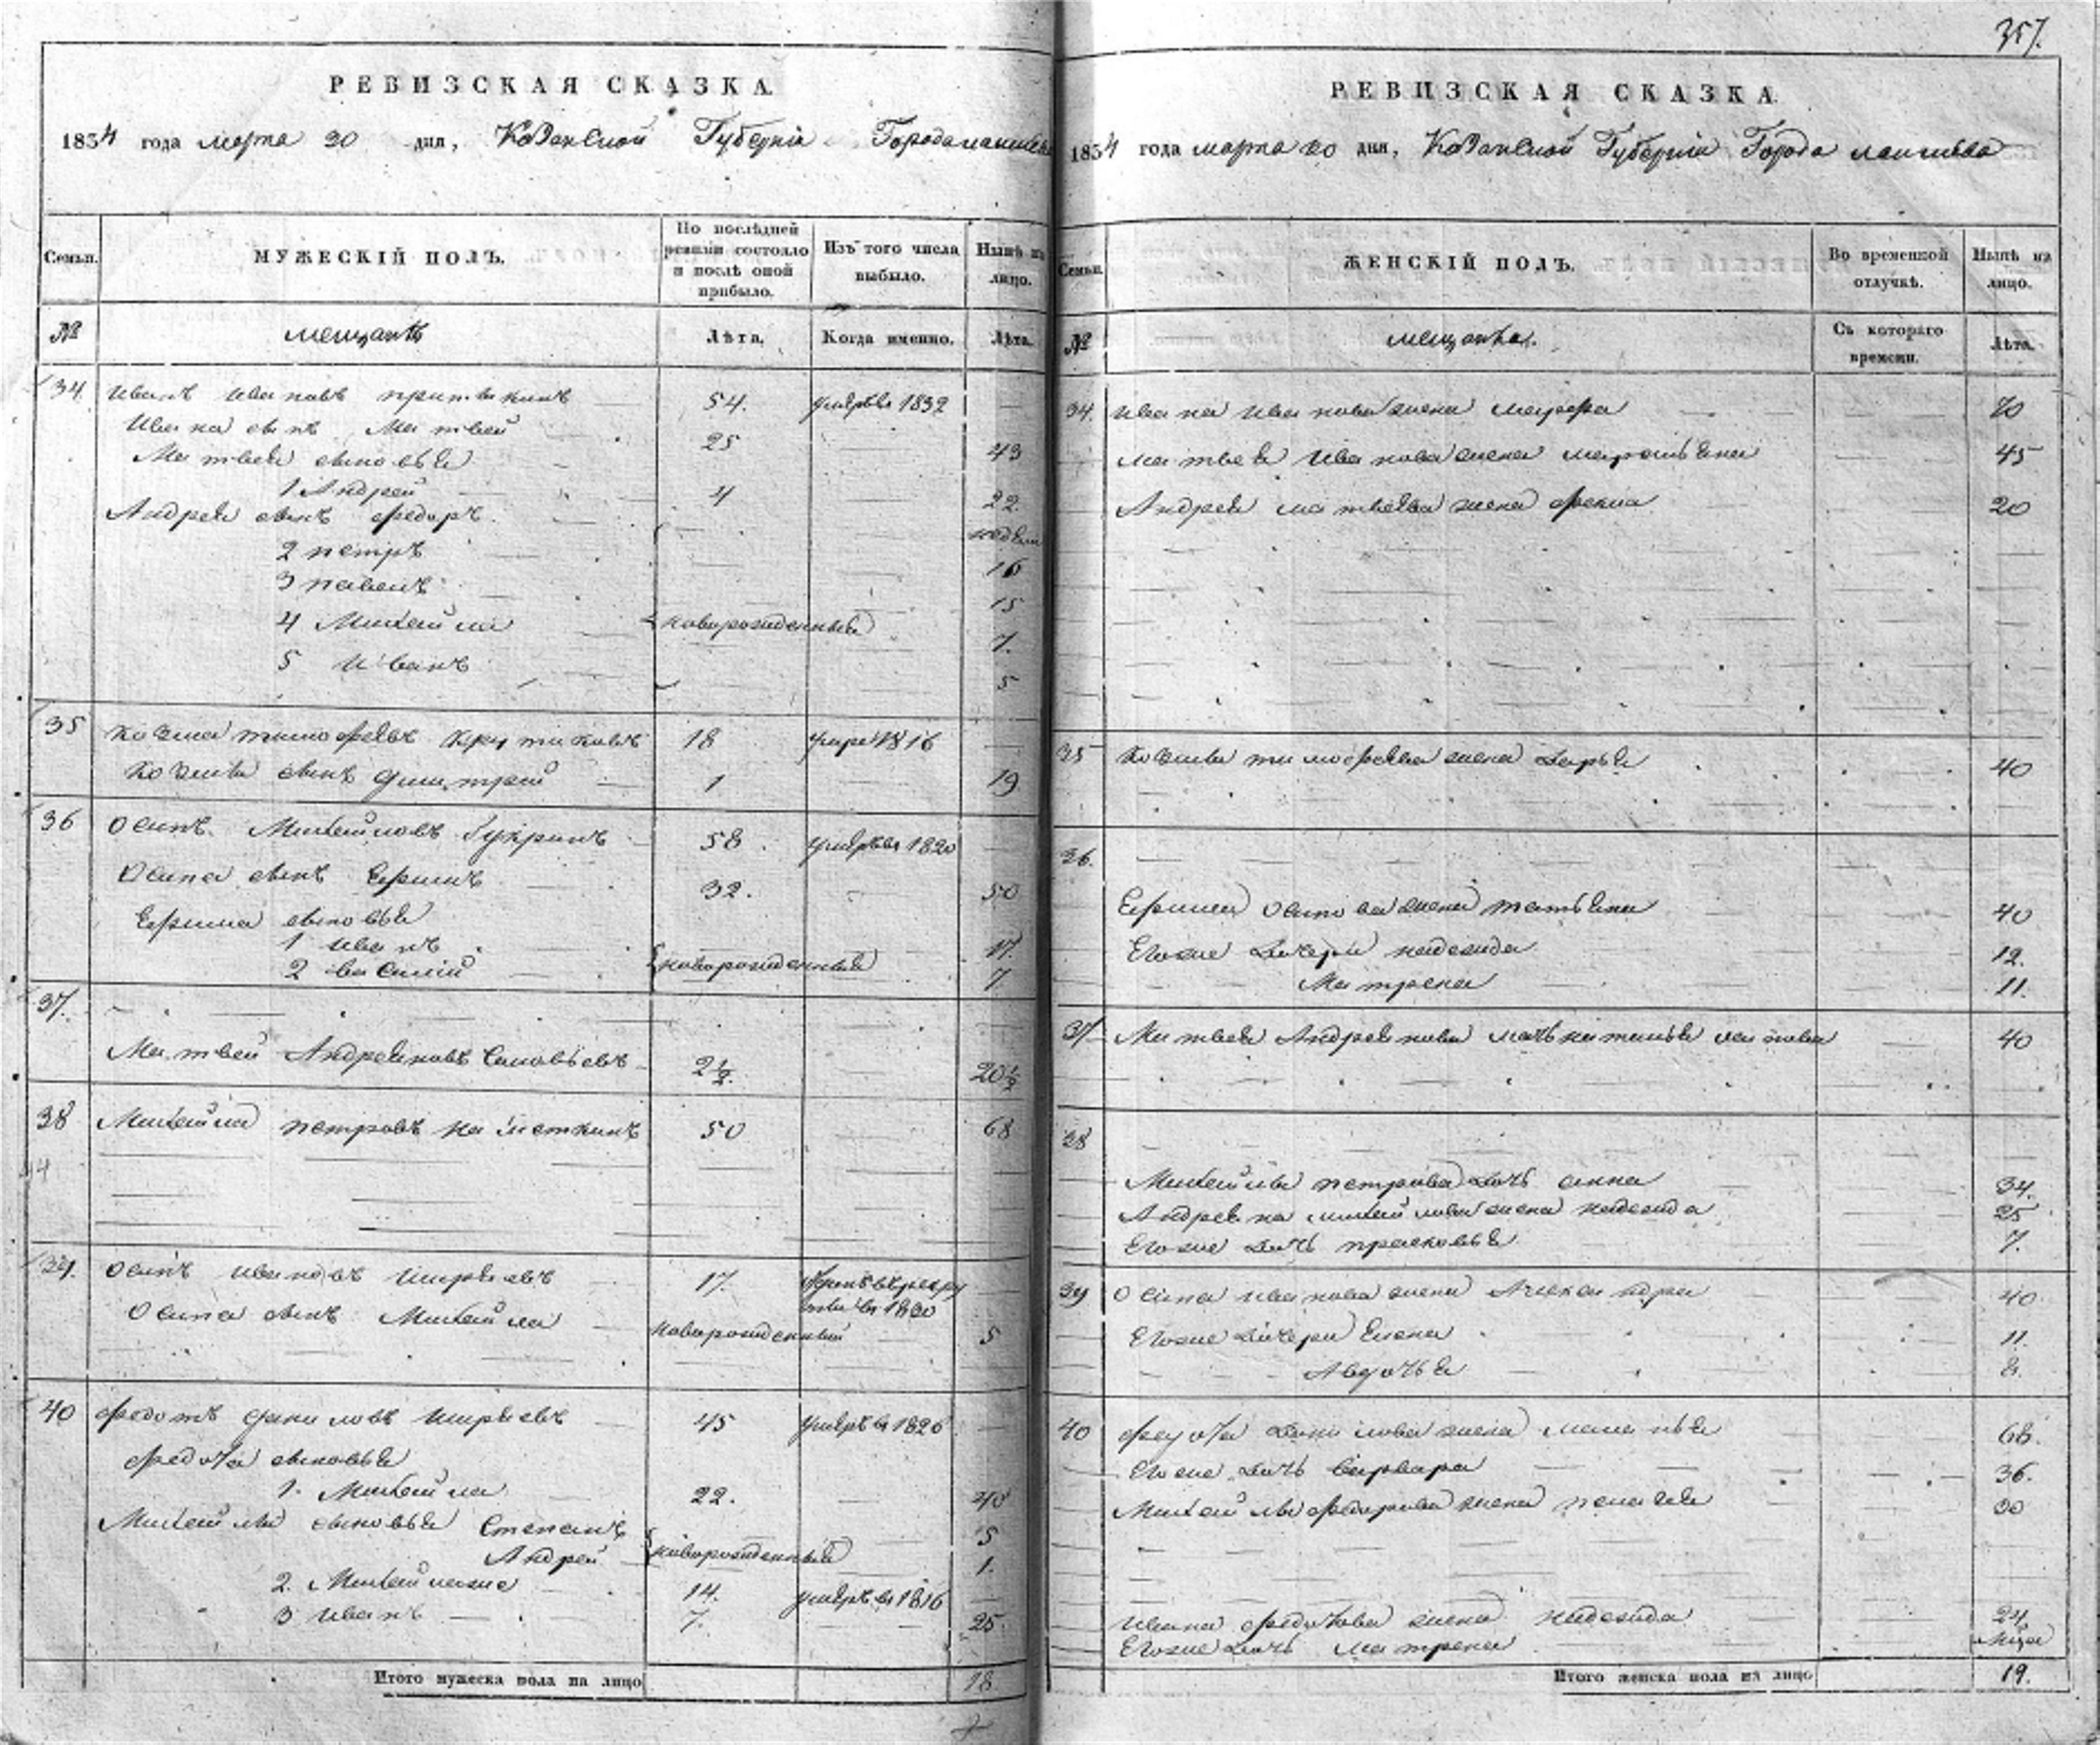 357.
РЕВИЗСКАЯ СКАЗКА
1834 года марта 20 дня, Казанской Губерніи Города
Семьи.
МУЖЕСКІЙ ПОЛЪ.
По послѣдней ревизіи состояло и послѣ оной прибыло.
Изъ того числа выбыло.
Нынѣ на лицо.
№
мещанѣ
Лѣта.
Когда именно.
Лѣта.
34. Иванъ Ивановъ 54. умре въ 1832 —
Ивана сынъ Матвей 25 43
Матвея сыновья
1 Андрей 4 22
Андрея сынъ Федоръ
2 петръ 16
3 павелъ 15
4 Михайла новорожденныя 7.
5 Иванъ 5
35 Козма тимофеевъ Крутиковъ 18 умре 1816 —
Козмы сынъ Дмитрей 1 19
36 Осипъ Михайловъ 58. умре въ 1820 —
Осипа сынъ Ефимъ 32. 50
Ефима сыновья
1 Иванъ 17.
2 василій новорожденныя 7
37.
Матвей Андреяновъ Соловьевъ 2½. 20½
38 Михайла петровъ 50 68
39. Осипъ Ивановъ Ширяевъ 17. въ 1830 —
Осипа сынъ Михайла новорожденный 5
40 Федотъ Даниловъ Ширяевъ 45 умре въ 1826 —
Федота сыновья
1. Михайла 22. 40
Михайлы сыновья Степанъ 5
Андрей новорожденныя 1.
2. Михайла же 14. умре въ 1816 —
3 Иванъ 7. 25.
Итого мужеска пола на лицо 18
РЕВИЗСКАЯ СКАЗКА
1834 года марта 20 дня, Казанской Губерніи Города лаишева
Семьи.
ЖЕНСКІЙ ПОЛЪ.
Во временной отлучкѣ.
Нынѣ на лицо.
№
мещанки.
Съ котораго времени.
Лѣта.
34. Ивана Иванова жена марфа 70
матвея Иванова жена 45
Андрея матвеева жена фекла 20
35 Козмы тимофеева жена Дарья 40
36.
Ефима Осипова жена татьяна 40
Егоже Дочери надежда 12.
Матрена 11.
37 Матвея Андреянова мать 40
38
Михайлы петрова Дочь анна 34.
Андреяна михайлова жена надежда 25
Егоже Дочь прасковья 7.
39 Осипа иванова жена Александра 40.
Егоже Дочери Елена 11.
Авдотья 8.
40 Федота Данилова жена маланья 68.
Егоже Дочь Варвара 36.
Михайлы жена пелагея 30
Ивана Федотова жена надежда 24
Егоже Дочь матрена
Итого женска пола на лицо 19.